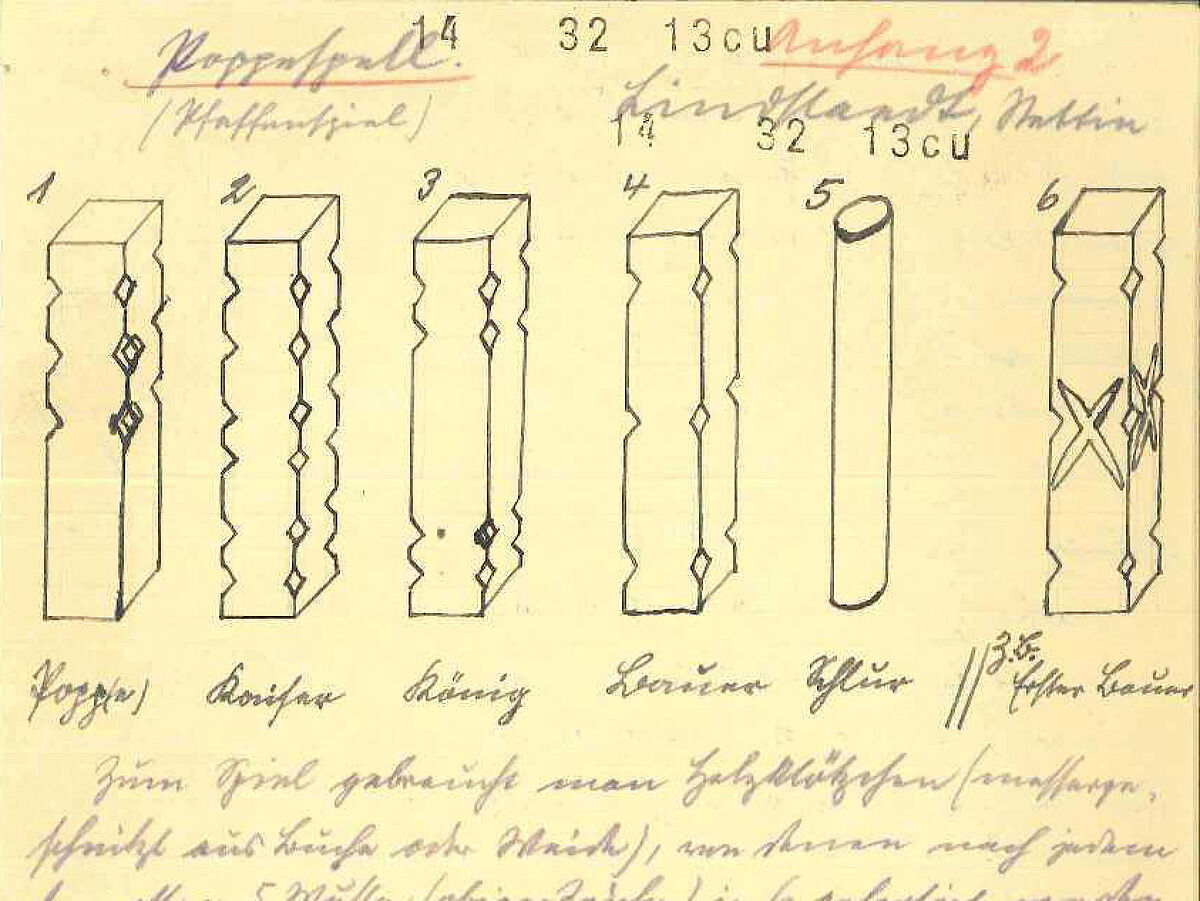 14 32 13cu
Poppespell. Anfang 2
(Pfaffenspiel) Lindstaedt, Stettin
14 32 13cu
1 2 3 4 5 6
Popp(e) Kaiser König Bauer Schlur z.B. Erster Bauer
Zum Spiel gebraucht man Holzklötzchen (messerge-
schnitzt aus Buche oder Weide), von denen nach jedem